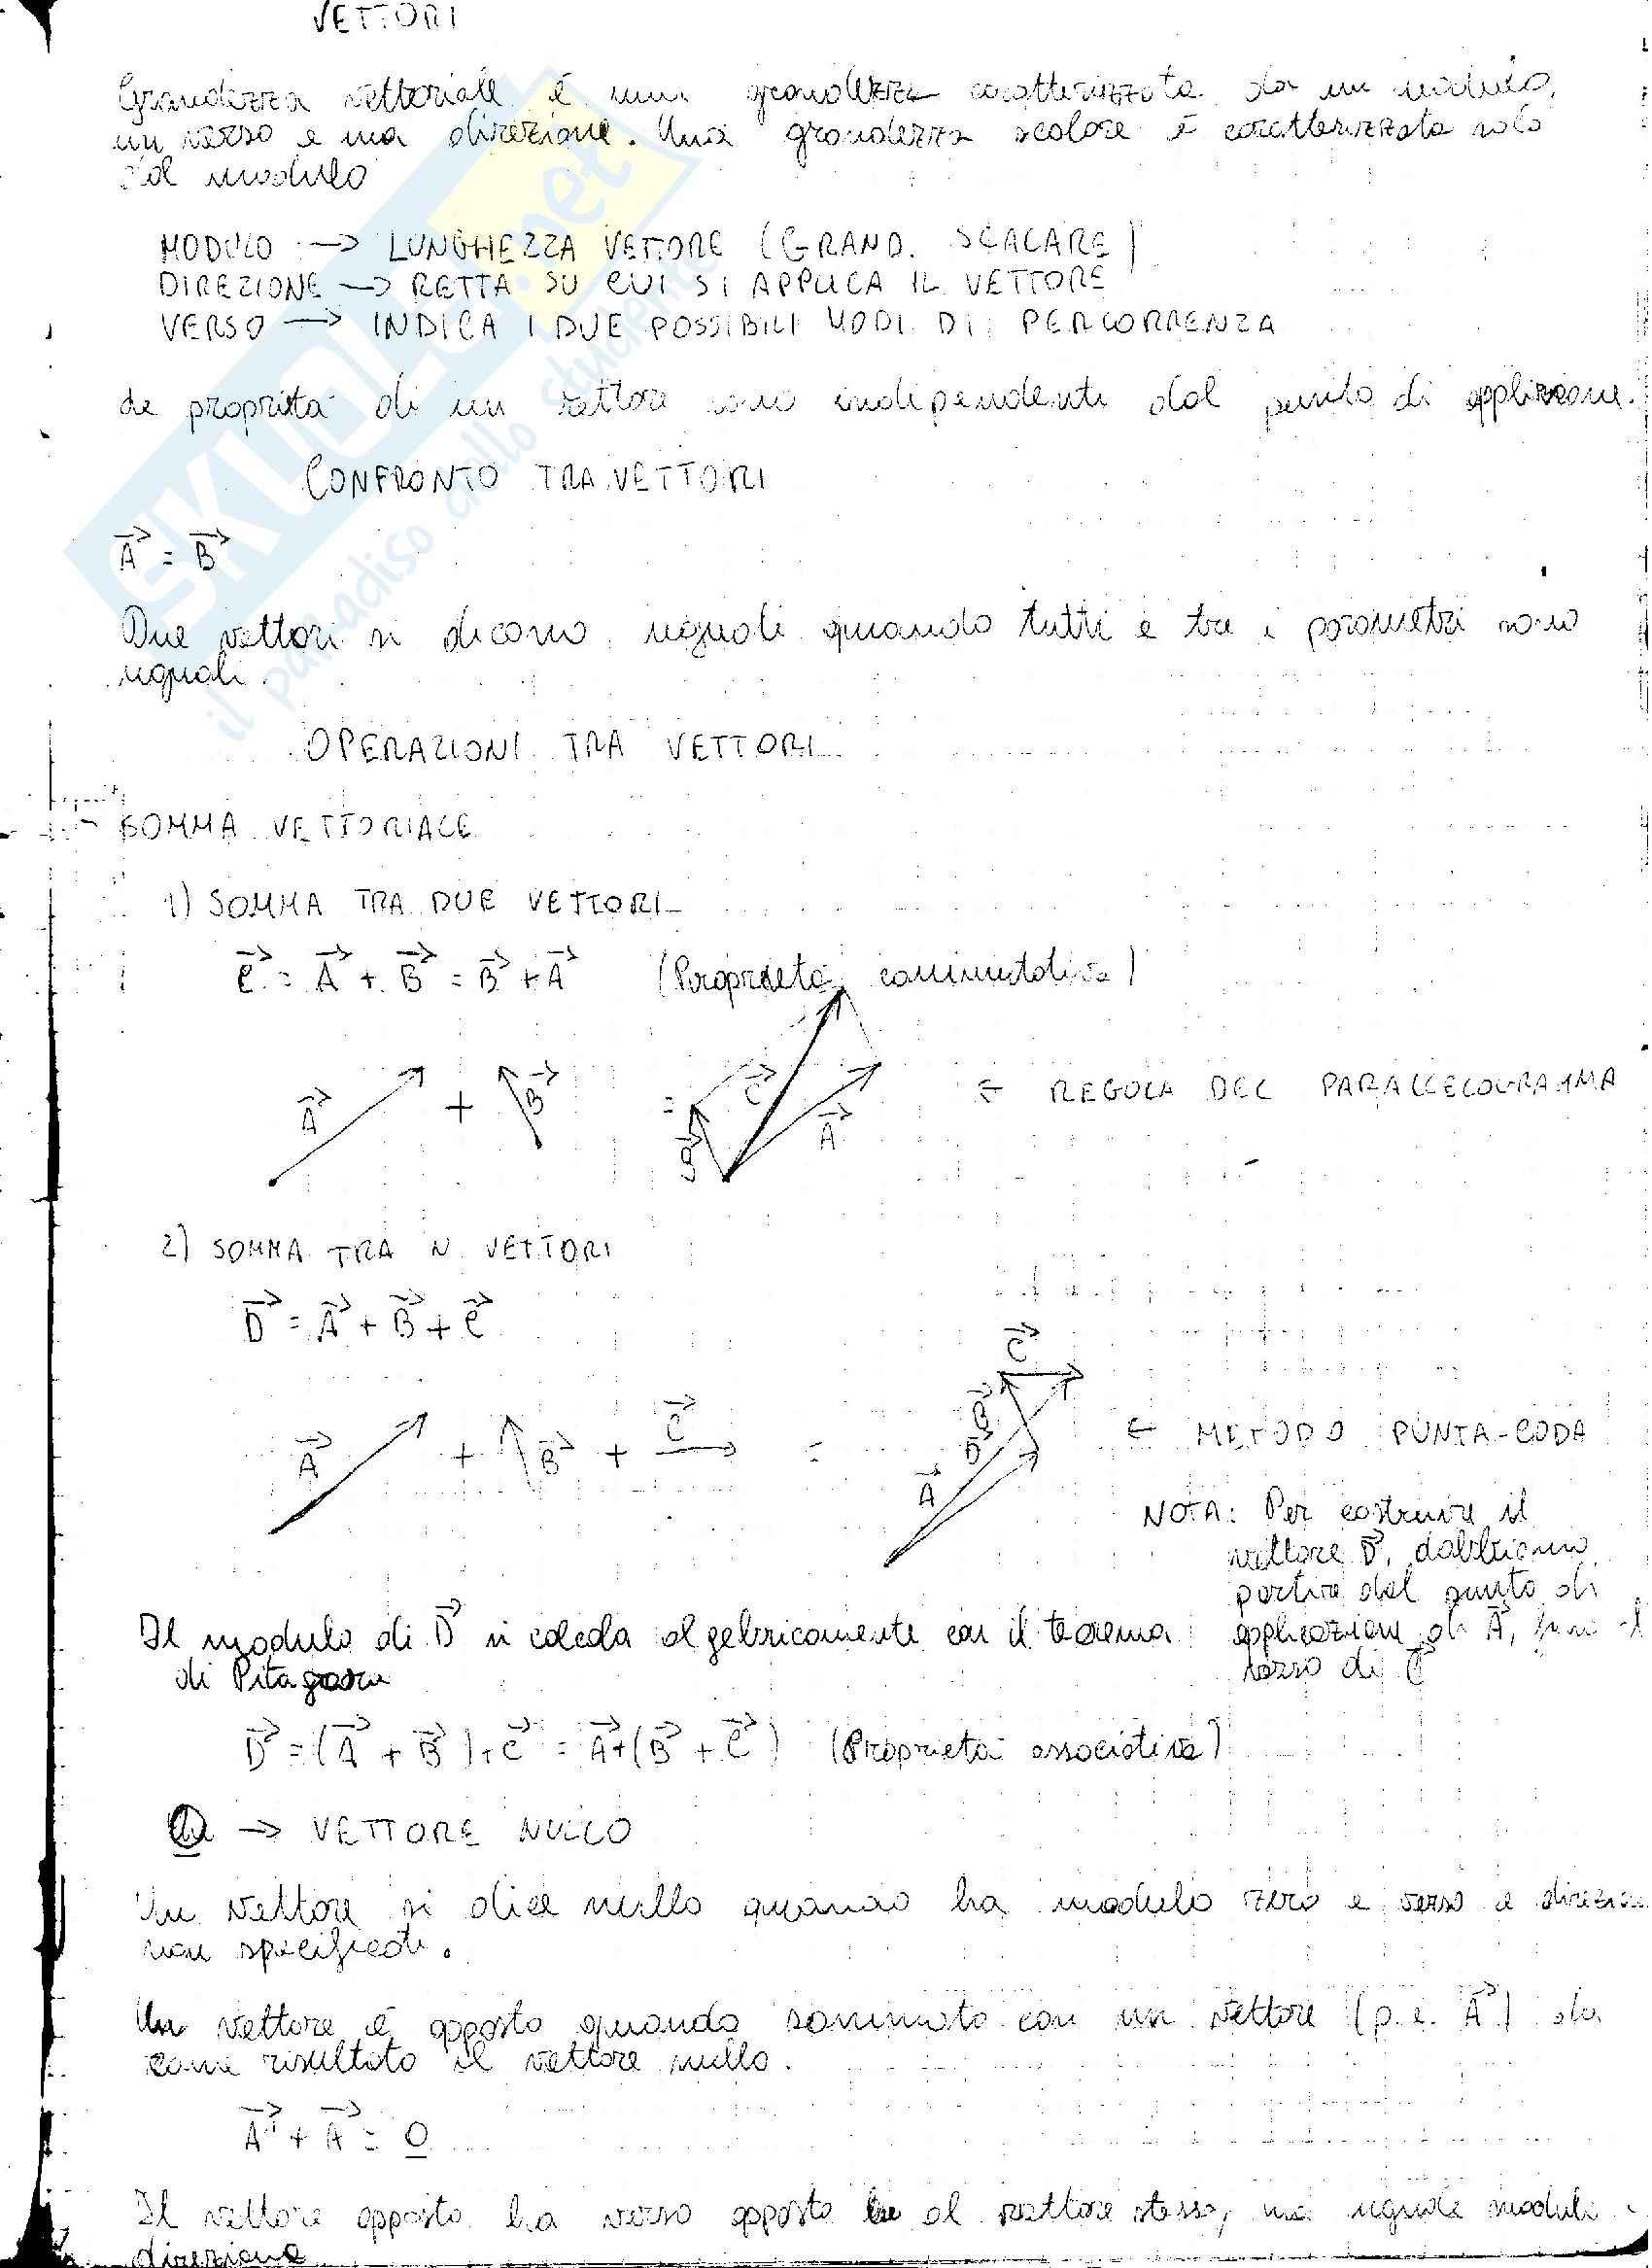 VETTORI
Grandezza vettoriale è una grandezza caratterizzata da un modulo,
un verso e una direzione. Una grandezza scalare è caratterizzata solo
dal modulo
MODULO → LUNGHEZZA VETTORE (GRAND. SCALARE)
DIREZIONE → RETTA SU CUI SI APPLICA IL VETTORE
VERSO → INDICA I DUE POSSIBILI MODI DI PERCORRENZA
Le proprietà di un vettore sono indipendenti dal punto di applicazione.
CONFRONTO TRA VETTORI
A⃗ = B⃗
Due vettori si dicono uguali quando tutti e tre i parametri sono
uguali.
OPERAZIONI TRA VETTORI
- SOMMA VETTORIALE
1) SOMMA TRA DUE VETTORI
C⃗ = A⃗ + B⃗ = B⃗ + A⃗ (Proprietà commutativa)
A⃗ + B⃗ = B⃗ C⃗ A⃗ ← REGOLA DEL PARALLELOGRAMMA
2) SOMMA TRA N VETTORI
D⃗ = A⃗ + B⃗ + C⃗
A⃗ + B⃗ + C⃗ = A⃗ D⃗ B⃗ C⃗ ← METODO PUNTA-CODA
NOTA: Per costruire il
vettore D⃗, dobbiamo
partire dal punto di
applicazione di A⃗,
verso di C⃗
Il modulo di D⃗ si calcola algebricamente con il teorema
di Pitagora
D⃗ = (A⃗ + B⃗) + C⃗ = A⃗ + (B⃗ + C⃗) (Proprietà associativa)
0 → VETTORE NULLO
Un vettore si dice nullo quando ha modulo zero e verso e direzione
non specificati.
Un vettore è opposto quando sommato con un vettore (p.e. A⃗) da
come risultato il vettore nullo.
A⃗' + A⃗ = 0
Il vettore opposto ha verso opposto al vettore stesso, ma uguale modulo e
direzione
SKUOLA.net
il paradiso dello studente